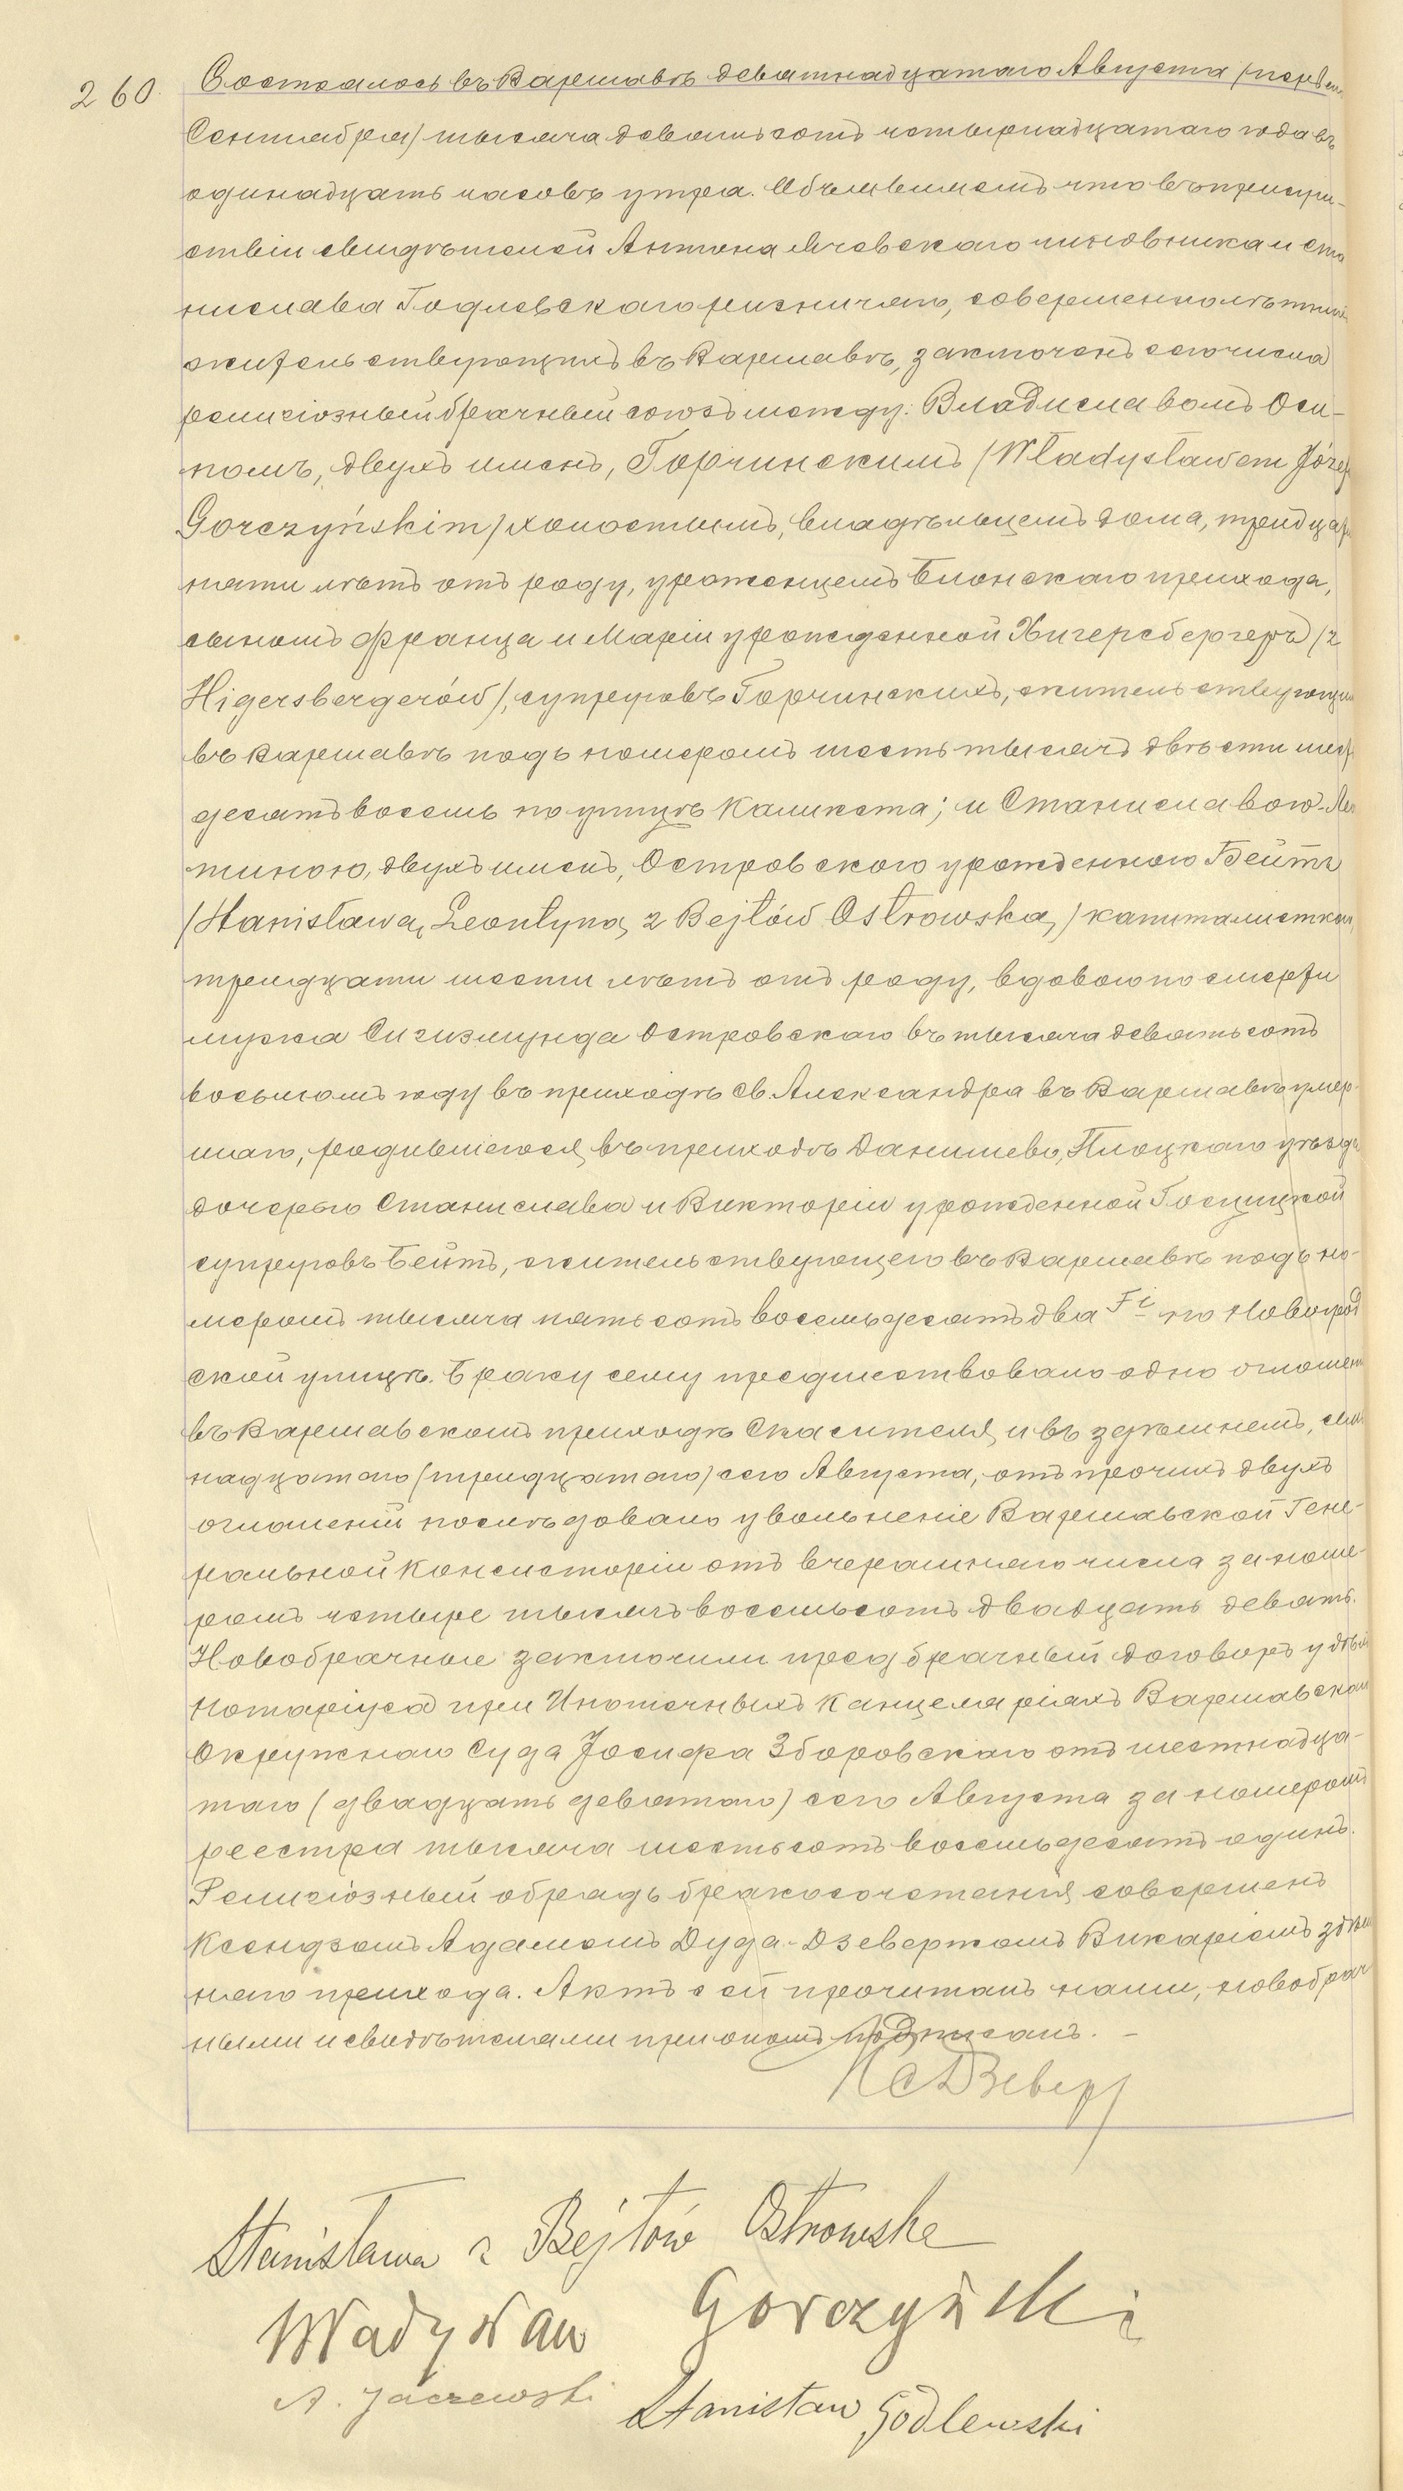 260. Состоялось въ Варшавѣ девятнадцатаго Августа /перваго
Сентября/ тысяча девятьсотъ четырнадцатаго года въ
одинадцать часовъ утра. Объявляемъ что въ присут-
ствіи свидѣтелей Антона Ячевскаго чиновника и Ста
нислава Годлевскаго ризничаго, совершеннолѣтнихъ
жительствующихъ въ Варшавѣ, заключенъ сего числа
религіозный брачный союзъ между: Владиславомъ Оси-
помъ, двухъ именъ, Горчинскимъ /Władysławem Józef
Gorczyńskim/ холостымъ, владѣльцемъ дома, тридцати
пяти лѣтъ отъ роду, уроженцемъ Блонскаго прихода,
сыномъ Франца и Маріи урожденной Хигерсбергеръ /z
Higersbergerów/, супруговъ Горчинскихъ, жительствующимъ
въ Варшавѣ подъ номеромъ шесть тысячъ двѣсти шесть
десятъ восемь по улицѣ Каликста; и Станиславою-Ле
тиною, двухъ именъ, Островскою урожденною Бейтъ
/Stanisława, Leontyna, z Bejtów Ostrowska,/ капиталисткою,
тридцати шести лѣтъ отъ роду, вдовою по смерти
мужа Сигизмунда Островскаго въ тысяча девятьсотъ
восьмомъ году въ приходѣ Св. Александра въ Варшавѣ умер-
шаго, родившегося въ приходѣ Данишево, Плоцкаго уѣзда
дочерью Станислава и Викторіи урожденной Госцицкой
супруговъ Бейтъ, жительствующею въ Варшавѣ подъ но-
меромъ тысяча пятьсотъ восемьдесятъ два Fi по Новогрод
ской улицѣ. Браку сему предшествовало одно оглашеніе
въ Варшавскомъ приходѣ Спасителя и въ здѣшнемъ, сем
надцатаго /тридцатаго/ сего Августа, отъ прочихъ двухъ
оглашеній послѣдовало увольненіе Варшавской Гене-
ральной Консисторіи отъ вчерашняго числа за номе-
ромъ четыре тысячъ восемьсотъ двадцать девять.
Новобрачные заключили предбрачный договоръ у
Нотаріуса при Ипотечныхъ Канцеляріяхъ Варшавскаго
Окружнаго Суда Іосифа Зборовскаго отъ шестнадца-
таго /двадцать девятаго/ сего Августа за номеромъ
реестра тысяча шестьсотъ восемьдесятъ одинъ.
Религіозный обрядъ бракосочетанія совершенъ
Ксендзомъ Адамомъ Дуда-Дзевертомъ Викаріемъ здѣш
няго прихода. Актъ сей прочитанъ нами, новобрач
ными и свидѣтелями при ономъ подписанъ. –
К С Дзеверт
Stanisława z Bejtów Ostrowska
Władysław Gorczyński
A. Jaczewski Stanisław Godlewski